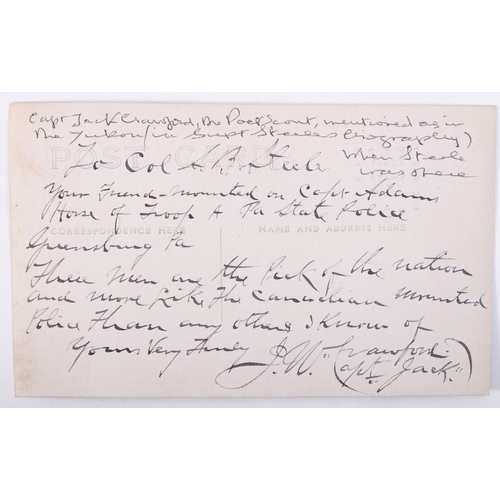 Capt Jack Crawford, the Poet Scout, mentioned as in
the Yukon (in Supt Steeles biography)
When Steele
was there
POST CARD
To Col S. B. Steele
Your Friend - mounted on Capt Adams
Horse of Troop A Pa State Police
CORRESPONDENCE HERE
NAME AND ADDRESS HERE
Greensburg Pa
These men are the Pick of the nation
and more like The Canadian mounted
Police Than any others I Know of
Yours Very Truly
J. W. Crawford
(Capt Jack."